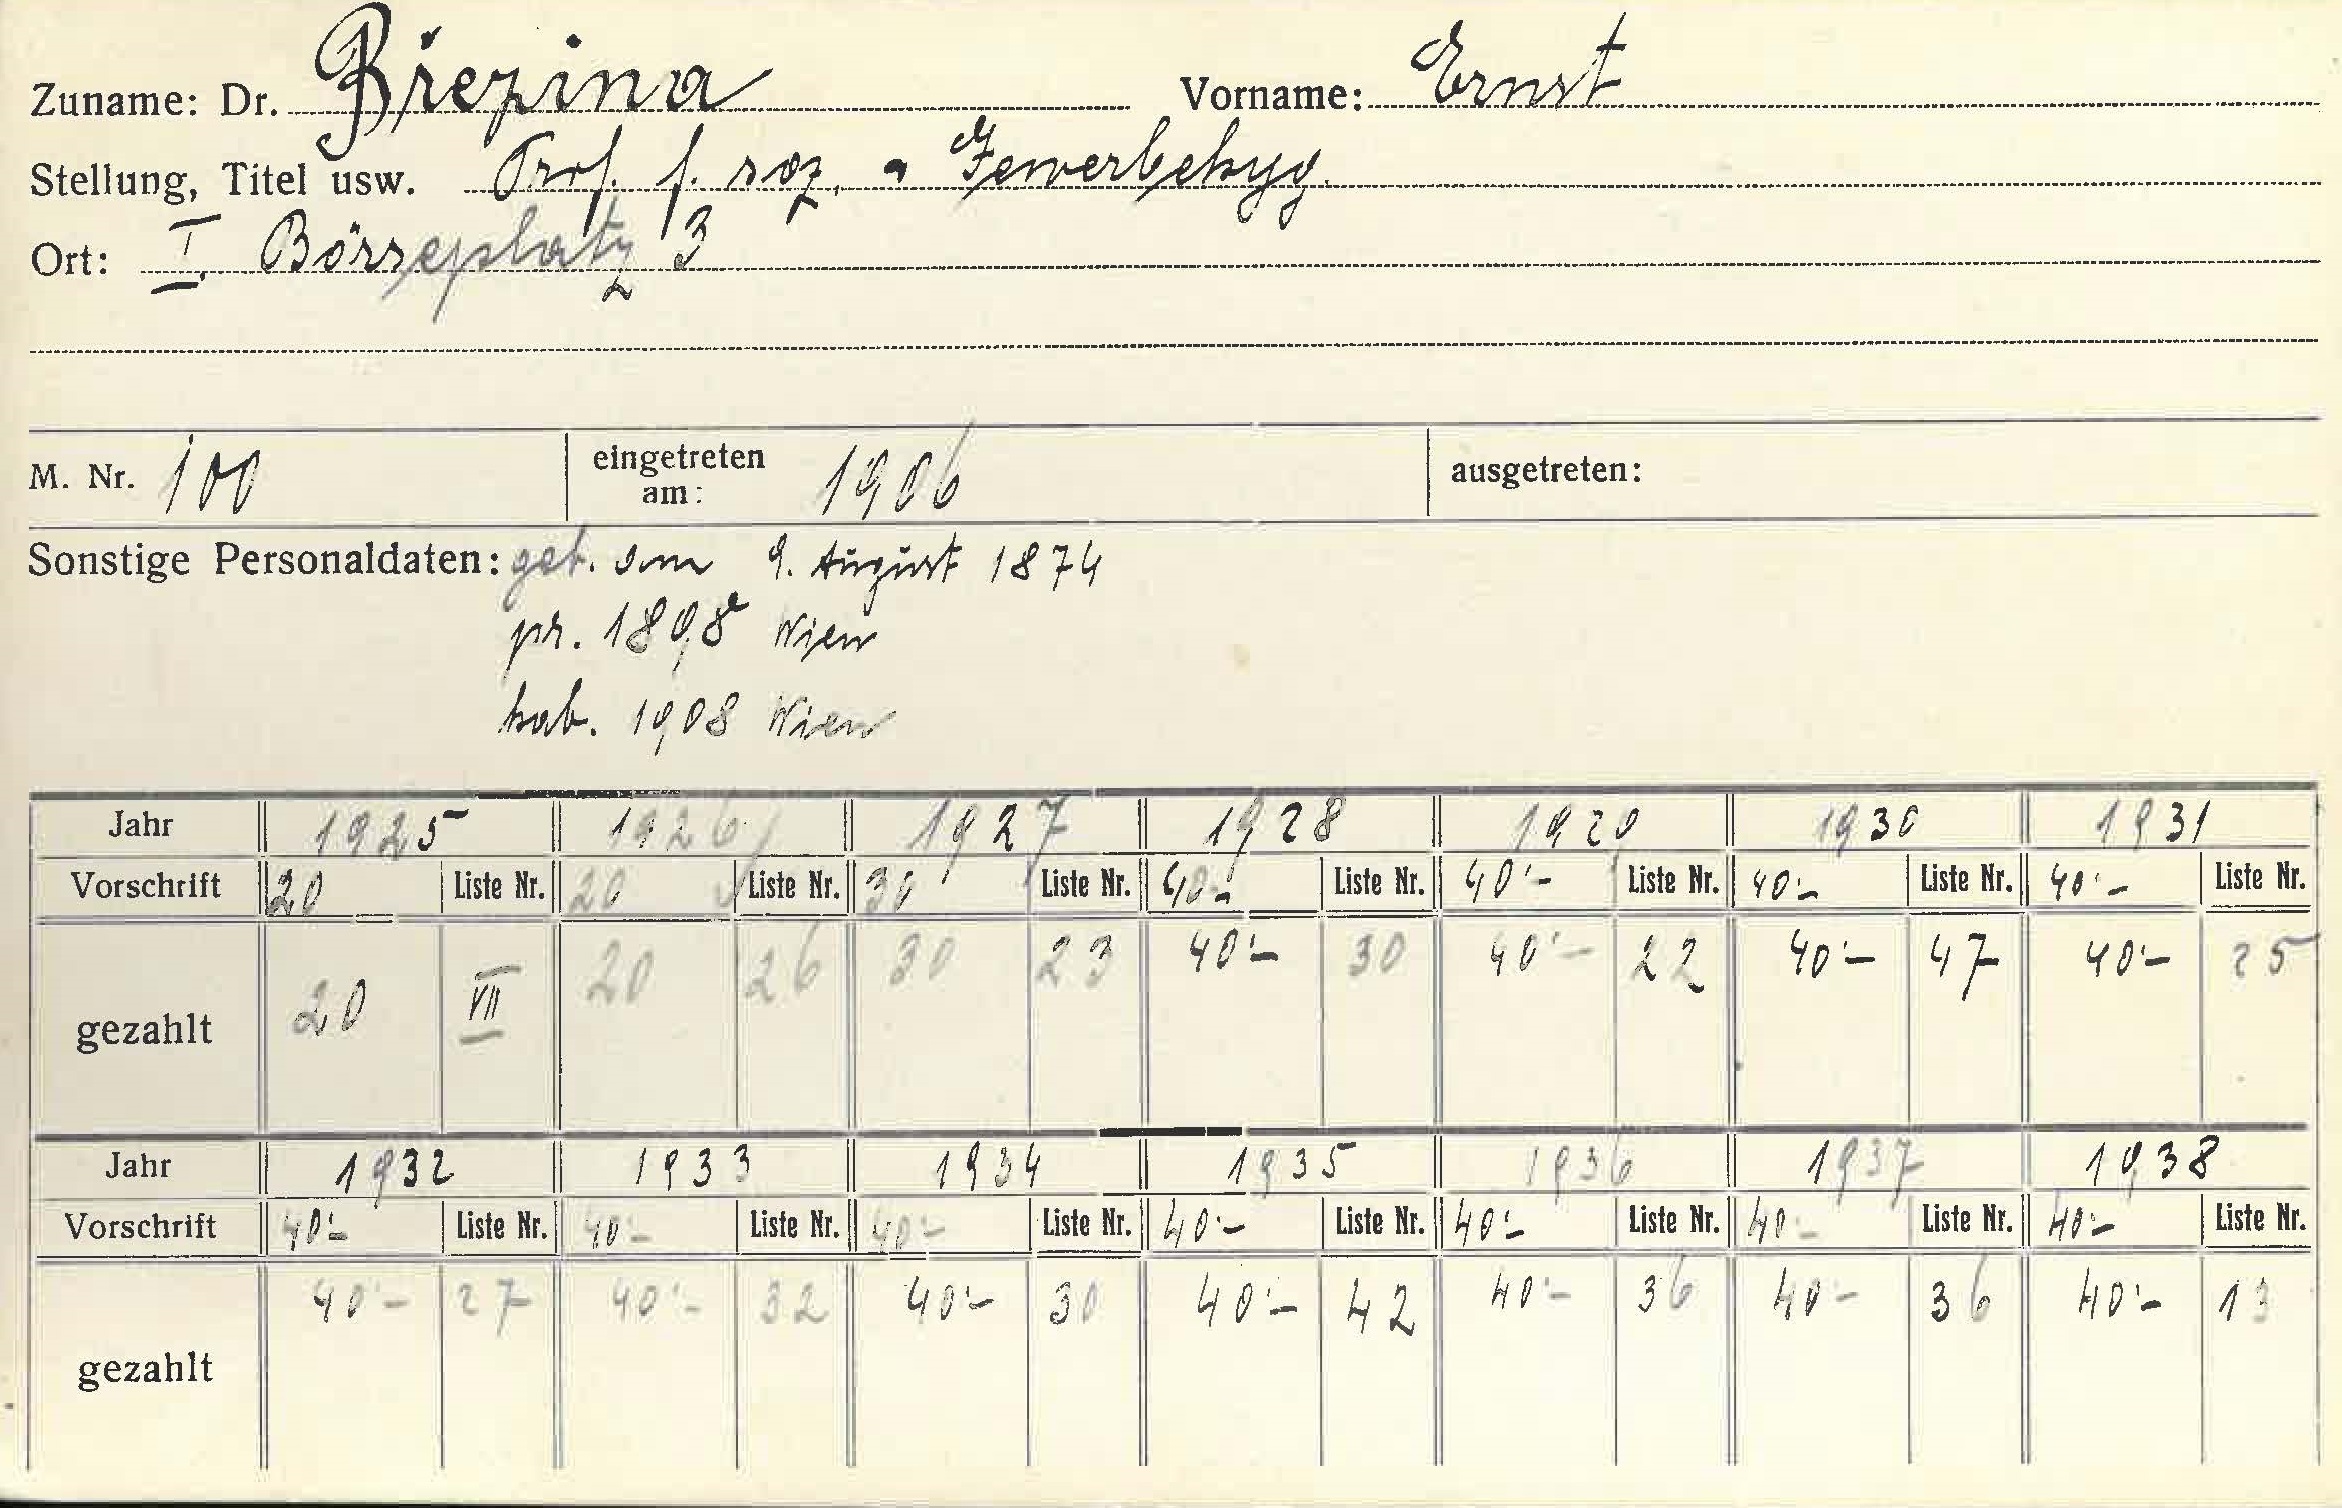 Zuname: Dr. Březina Vorname: Ernst
Stellung, Titel usw. Prof. f. soz. u Gewerbehyg.
Ort: I. Börseplatz 3
M. Nr. 100 eingetreten am: 1906 ausgetreten:
Sonstige Personaldaten: geb. am 9. August 1874
pr. 1898 Wien
hab. 1908 Wien
Jahr 1925 1926 1927 1928 1929 1930 1931
Vorschrift 20 Liste Nr. 20 Liste Nr. 30 Liste Nr. 40.- Liste Nr. 40.- Liste Nr. 40.- Liste Nr. 40.- Liste Nr.
gezahlt 20 VII 20 26 30 23 40.- 30 40.- 22 40.- 47 40.- 25
Jahr 1932 1933 1934 1935 1936 1937 1938
Vorschrift 40.- Liste Nr. 40.- Liste Nr. 40.- Liste Nr. 40.- Liste Nr. 40.- Liste Nr. 40.- Liste Nr. 40.- Liste Nr.
gezahlt 40.- 27 40.- 32 40.- 30 40.- 42 40.- 36 40.- 36 40.- 13